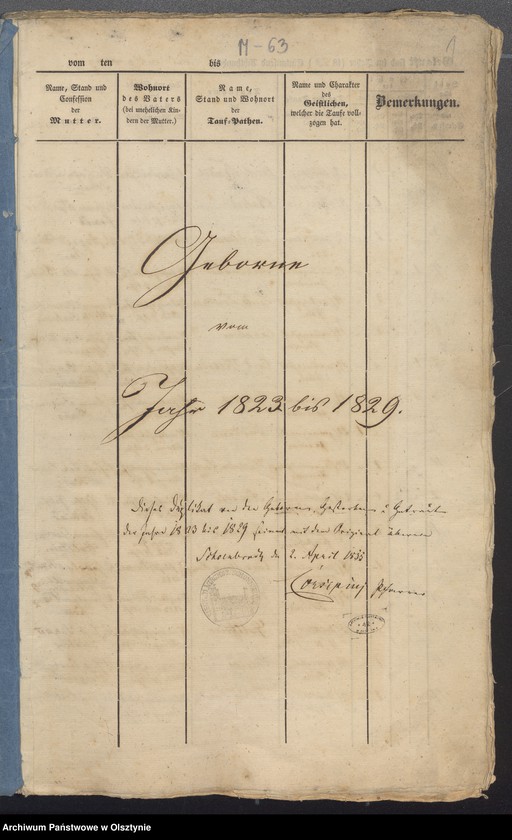 M-63
1
vom ten bis
Name, Stand und
Confession
der
Mutter.
Wohnort
des Vaters
(bei unehelichen Kin-
dern der Mutter.)
Name,
Stand und Wohnort
der
Tauf-Pathen.
Name und Charakter
des
Geistlichen,
welcher die Taufe voll-
zogen hat.
Bemerkungen.
Geborne
vom
Jahr 1823 bis 1829.
Dieses Duplikat von den Gebornen, Gestorbenen u Getrauten
der Jahre 1823 bis 1829 stimmt mit dem Original überein
den 2. April 1835
Pfarrer
Archiwum Państwowe w Olsztynie